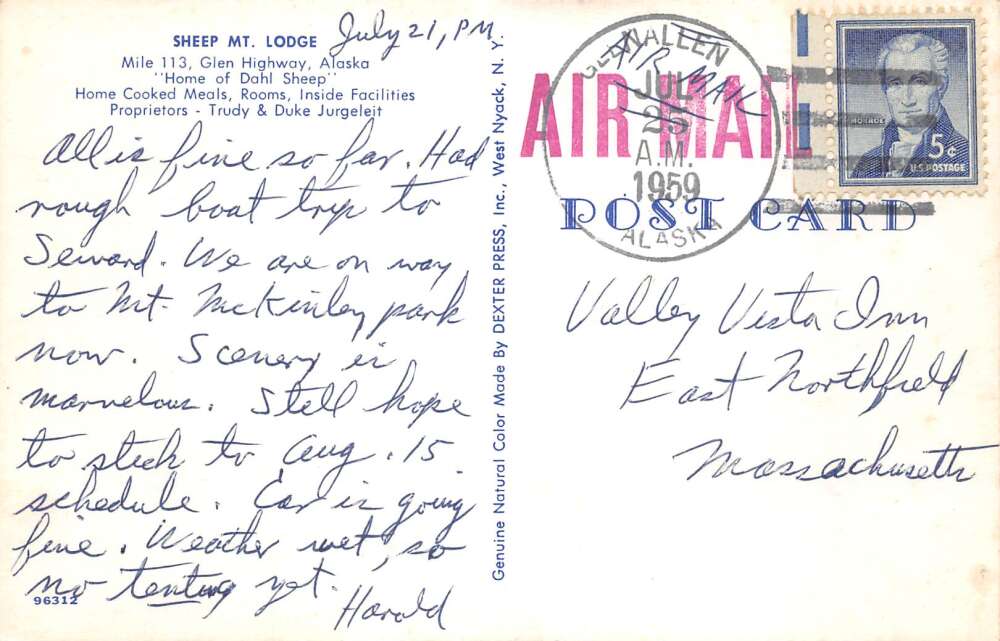 SHEEP MT. LODGE
Mile 113, Glen Highway, Alaska
"Home of Dahl Sheep"
Home Cooked Meals, Rooms, Inside Facilities
Proprietors - Trudy & Duke Jurgeleit
July 21, PM
All is fine so far. Had
rough boat trip to
Seward. We are on way
to Mt. McKinley park
now. Scenery is
marvelous. Still hope
to stick to Aug. 15
schedule. Car is going
fine. Weather wet, so
no tenting yet.
Harold
96312
Genuine Natural Color Made By DEXTER PRESS, Inc., West Nyack, N. Y.
AIR MAIL
AIR MAIL
GLENNALLEN
JUL
25
A.M.
1959
ALASKA
MONROE
5¢
U.S. POSTAGE
POST CARD
Valley Vista Inn
East Northfield
Massachusetts